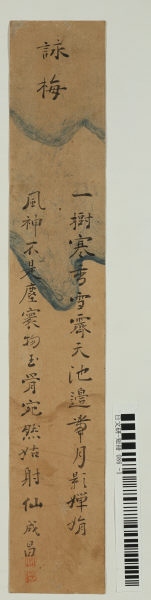 詠梅
一樹寒香雪霽天池邊帶月影嬋娟
風神不是塵寰物玉骨宛然姑射仙 成昌